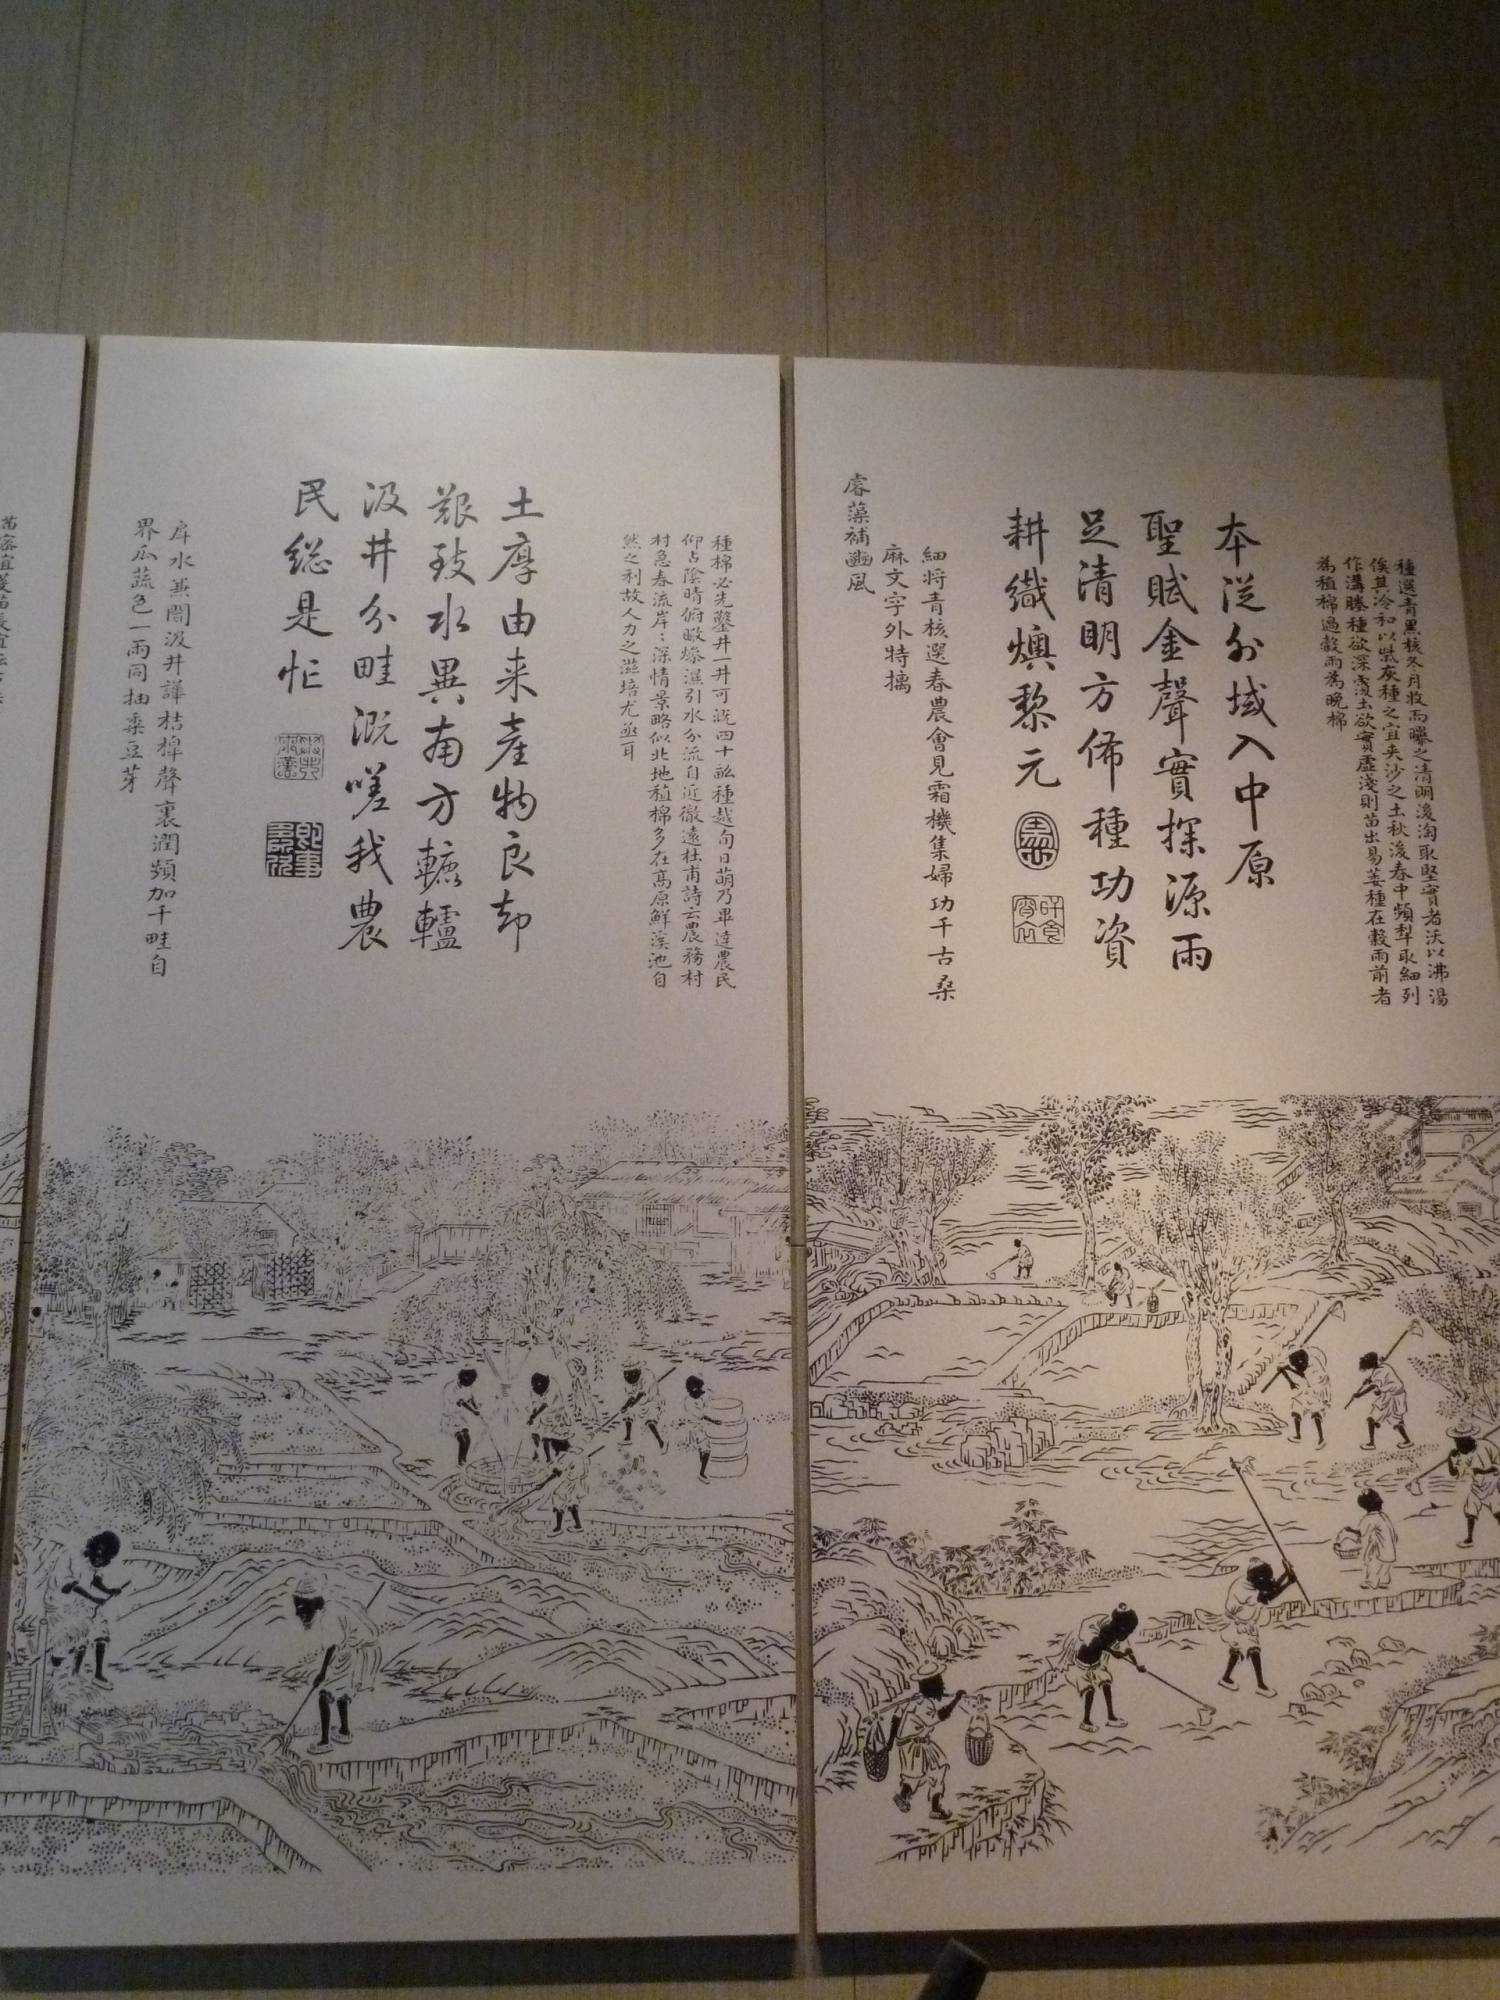 種選青黑核冬月收而曝之清明後淘取堅實者沃以沸湯
俟其冷和以柴灰種之宜夾沙之土秋後春中頻犁取細列
作溝塍種欲深覆土欲實虛淺則苗出易萎種在穀雨前者
為植棉過穀雨為晚棉
本從外域入中原
聖賦金聲實探源雨
足清明方佈種功資
耕織燠黎元
細將青核選春農會見霜機集婦功千古桑
麻文字外特摛
睿藻補豳風
種棉必先鑿井一井可溉四十畝種越旬日萌乃畢達農民
仰占陰晴俯瞰燥濕引水分流自近徹遠杜甫詩云農務村
村急春流岸:深情景略似北地植棉多在高原鮮溪池自
然之利故人力之滋培尤亟耳
土厚由来產物良却
艱致水異南方轆轤
汲井分畦溉嗟我農
民総是忙
戽水兼聞汲井譁桔橰聲裏潤頻加千畦自
界瓜蔬色一雨同抽黍豆芽